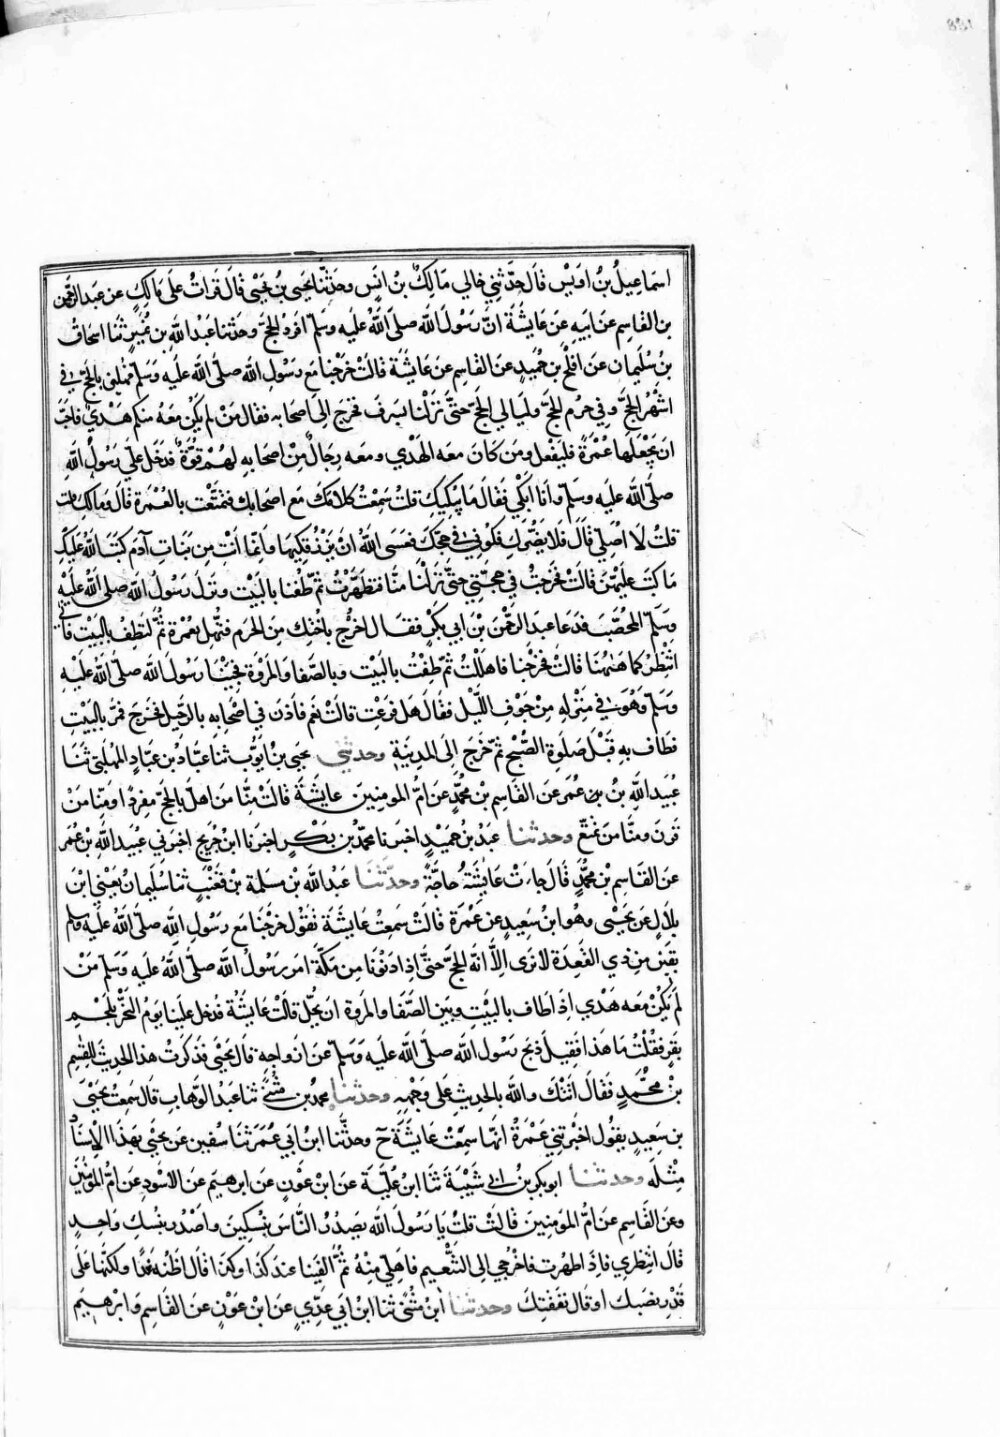 اسماعيل بن اويس قال حدثني خالي مالك بن انس وحدثنا يحيى بن يحيى قال قرات على مالك عن عبد الرحمن
بن القاسم عن ابيه عن عايشة ان رسول الله صلى الله عليه وسلم افرد الحج وحدثنا عبد الله بن نمير ثنا اسحاق
بن سليمان عن افلح بن حميد عن القاسم عن عايشة قالت خرجنا مع رسول الله صلى الله عليه وسلم مهلين بالحج في
اشهر الحج وفي حرم الحج وليالي الحج حتى نزلنا بسرف فخرج الى اصحابه فقال من لم يكن معه منكم هدي فاحب
ان يجعلها عمرة فليفعل ومن كان معه الهدي ومعه رجال من اصحابه لهم قوة فدخل علي رسول الله
صلى الله عليه وسلم وانا ابكي فقال ما يبكيك قلت سمعت كلامك مع اصحابك فتمتعت بالعمرة قال ومالك
قلت لا اصلي قال فلا يضرك فكوني في حجك فعسى الله ان يرزقكيها وانما انت من بنات آدم كتب الله عليك
ما كتب عليهن قالت فخرجت في حجتي حتى نزلنا منا فتطهرت ثم طفنا بالبيت ونزل رسول الله صلى الله عليه
وسلم المحصب فدعا عبد الرحمن بن ابي بكر فقال اخرج باختك من الحرم فتهل بعمرة ثم لتطف بالبيت فاني
انتظركما هنهنا قالت فخرجنا فاهللت ثم طفت بالبيت وبالصفا والمروة فجينا رسول الله صلى الله عليه
وسلم وهو في منزله من جوف الليل فقال هل فرغت قالت نعم فاذن في اصحابه بالرحيل فخرج فمر بالبيت
فطاف به قبل صلوة الصبح ثم خرج الى المدينة وحدثني يحيى بن ايوب ثنا عباد بن عباد المهلبي ثنا
عبيد الله بن عمر عن القاسم بن محمد عن ام المومنين عايشة قالت منا من اهل بالحج مفردا ومنا من
قرن ومنا من تمتع وحدثنا عبد بن حميد اخبرنا محمد بن بكر اخبرنا ابن جريج اخبرني عبيد الله بن عمر
عن القاسم بن محمد قال جاءت عايشة حاجة وحدثنا عبد الله بن مسلمة بن قعنب ثنا سليمان يعني ابن
بلال عن يحيى وهو ابن سعيد عن عمرة قالت سمعت عايشة تقول خرجنا مع رسول الله صلى الله عليه وسلم
بقين من ذي القعدة لا نرى الا انه الحج حتى اذا دنونا من مكة امر رسول الله صلى الله عليه وسلم من
لم يكن معه هدي اذا طاف بالبيت وبين الصفا والمروة ان يحل قالت عايشة فدخل علينا يوم النحر بلحم
بقر فقلت ما هذا فقيل ذبح رسول الله صلى الله عليه وسلم عن ازواجه قال يحيى فذكرت هذا الحديث للقسم
بن محمد فقال اتتك والله بالحديث على وجهه وحدثنا محمد بن مثنى ثنا عبد الوهاب قال سمعت يحيى
بن سعيد يقول اخبرتني عمرة انها سمعت عايشة ح وحدثنا ابن ابي عمر ثنا سفين عن يحيى بهذا الاسناد
مثله وحدثنا ابو بكر بن ابي شيبة ثنا ابن علية عن ابن عون عن ابرهيم عن الاسود عن ام المومنين
وعن القاسم عن ام المومنين قالت قلت يا رسول الله يصدر الناس بنسكين واصدر بنسك واحد
قال انتظري فاذا طهرت فاخرجي الى التنعيم فاهلي منه ثم القينا عند كذا وكذا قال اظنه غدا ولكنها على
قدر نصبك او قال نفقتك وحدثنا ابن مثنى ثنا ابن ابي عدي عن ابن عون عن القاسم وابرهيم